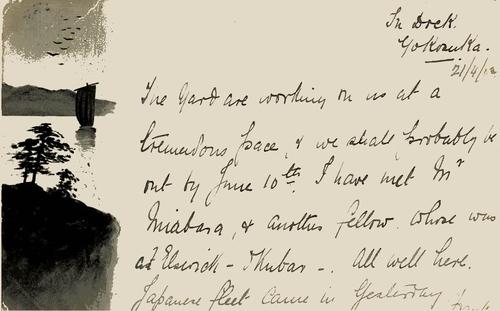 In Dock.
Yokosuka.
21/4/12
The Yard are working on us at a
tremendous pace, & we shall probably be
out by June 10th. I have met Mr
Miabara, & another fellow whose was
at Elswick - Okubar -. All well here.
Japanese fleet came in yesterday